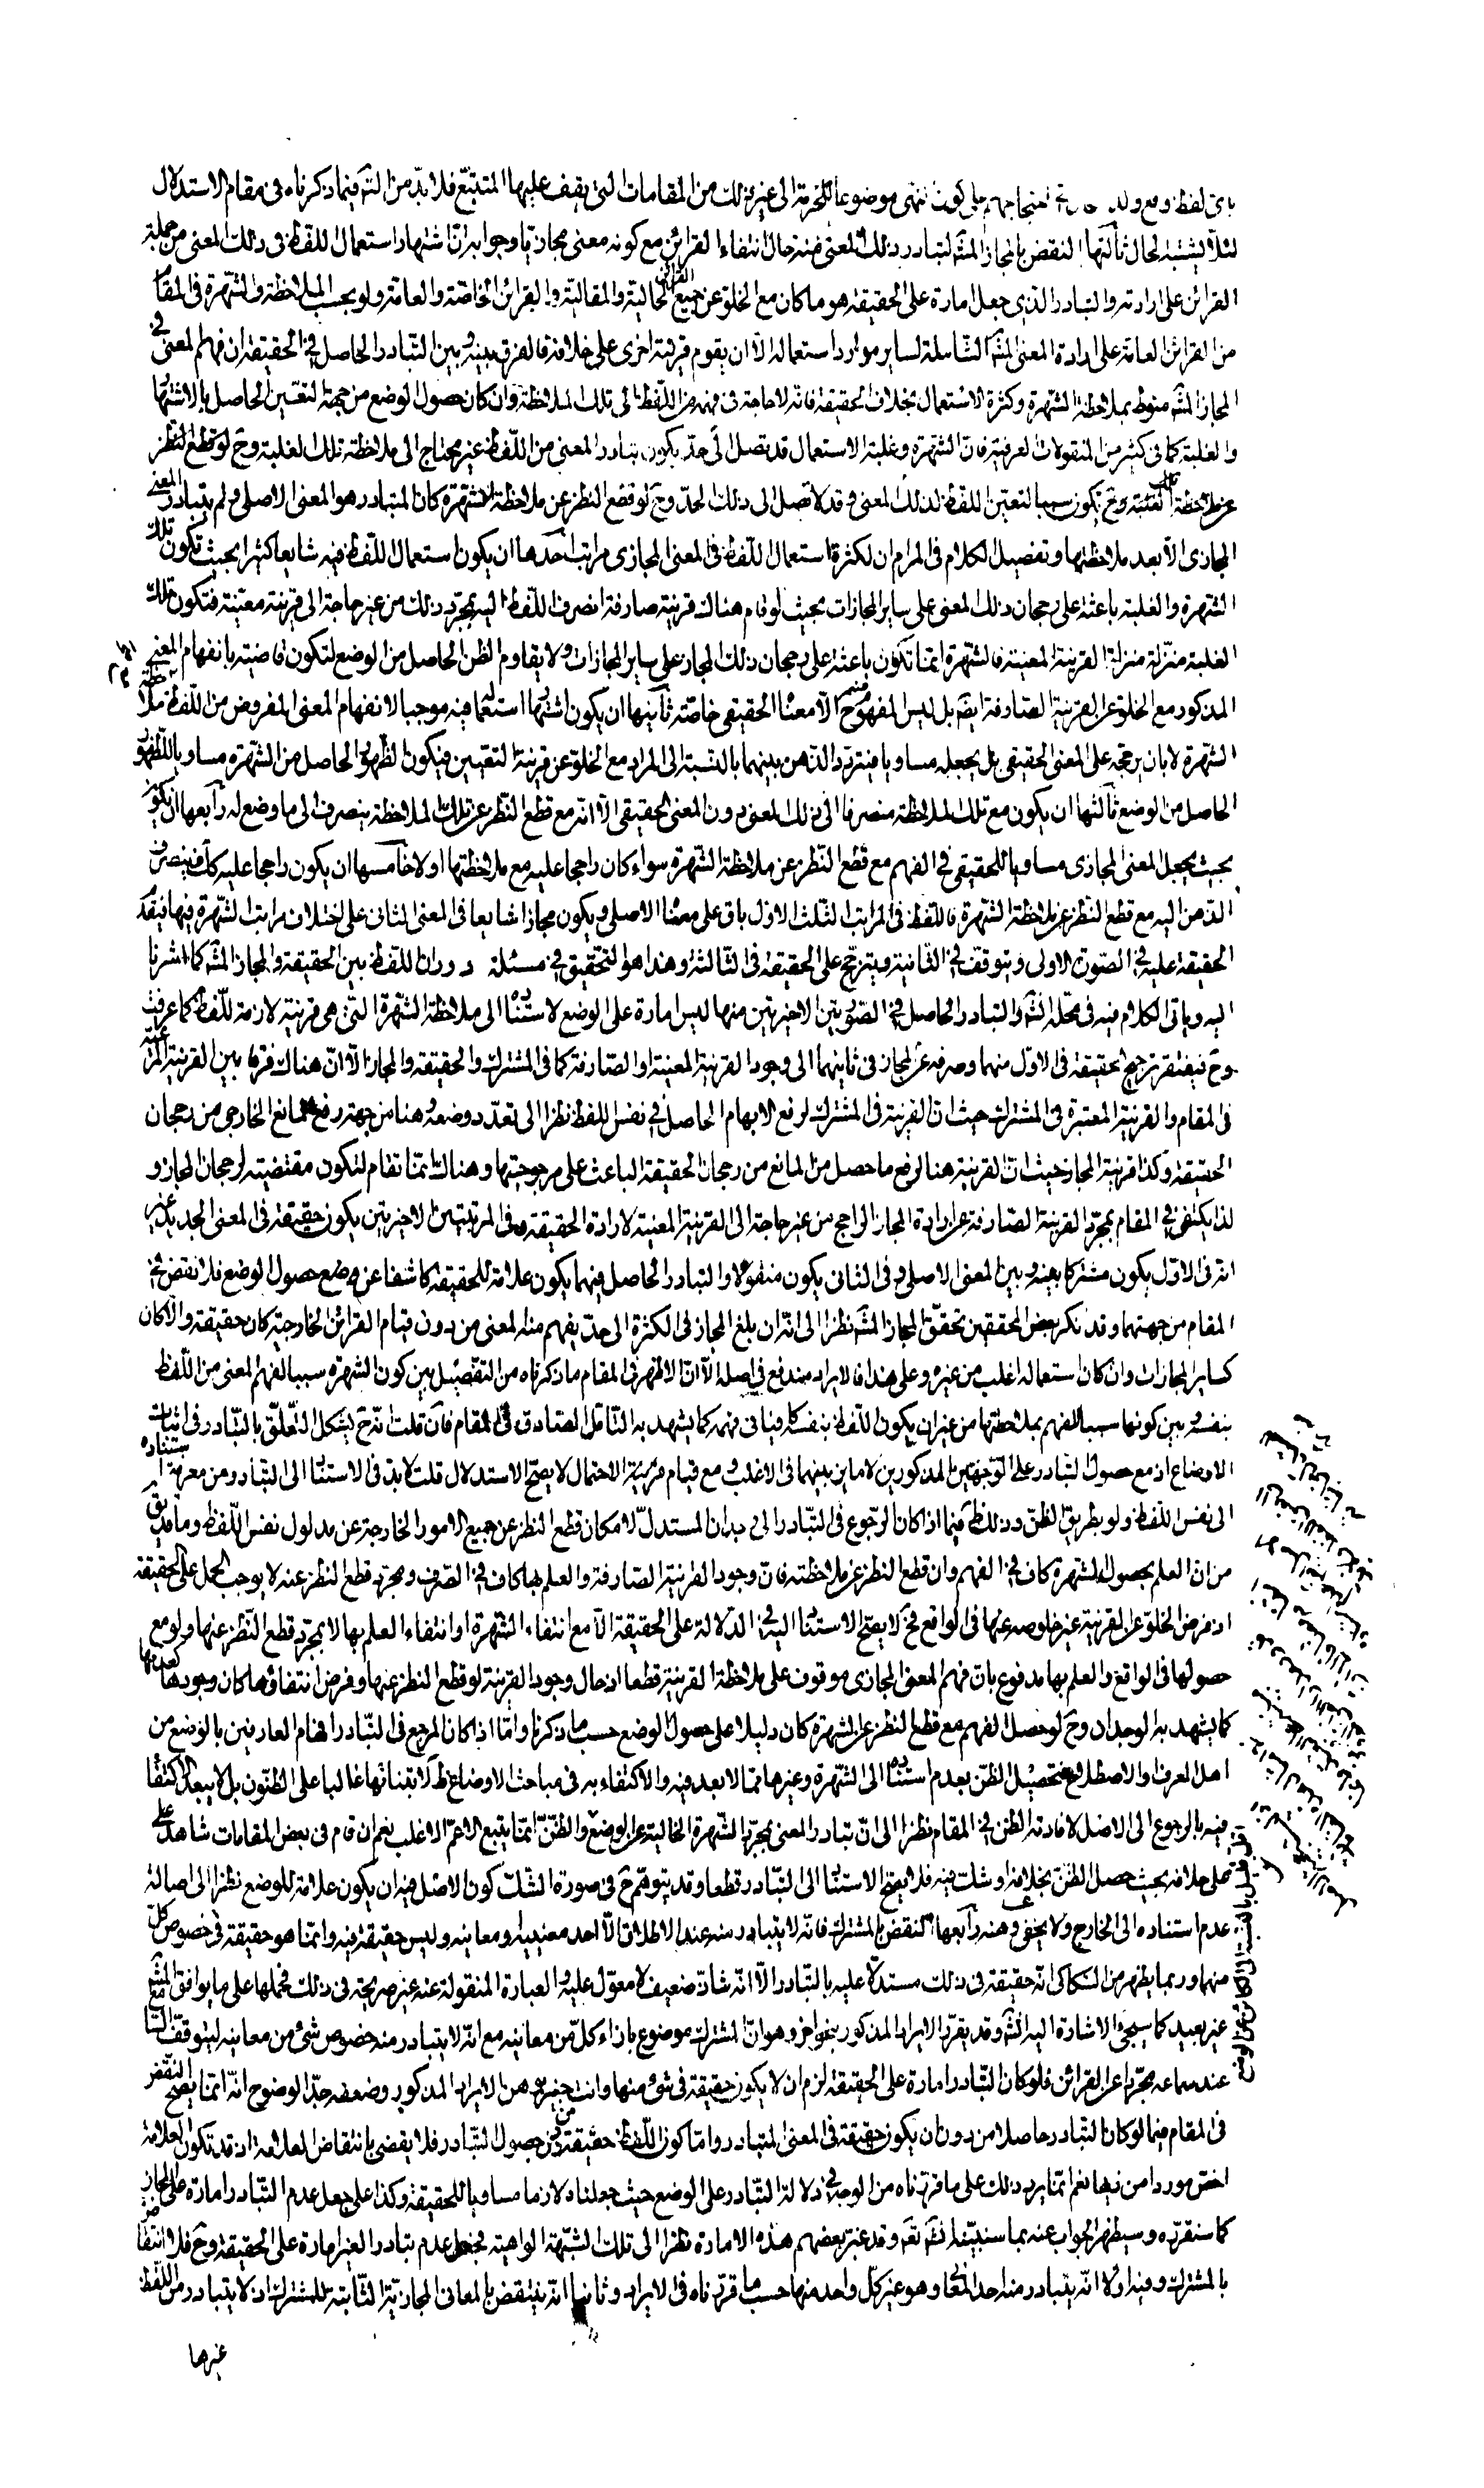 باى لفظ وقع ولد احتجاجهم على كون نهى موضوعا للحرمة الى غير ذلك من المقامات التى يقف عليها المتتبع فلا بد من التم فيما ذكرناه فى مقام الاستدلال
لئلا يشتبه الحال ثالثها النقض بالمجاز المشه لتبادر ذلك المعنى منه حال انتفاء القرائن مع كونه معنى مجازيا وجوابه ان اشتهار استعمال اللفظ فى ذلك المعنى من جملة
القرائن على ارادته والتبادر الذى جعل امارة على الحقيقة هو ما كان مع الخلو عن جميع القرائن الحالية والمقالية والقرائن الخاصة والعامة ولو بحسب الملاحظة والشهرة فى المقام
من القرائن العامة على ارادة المعنى المشه الشاملة لساير موارد استعماله الا ان يقوم قرينة اخرى على خلافه فالفرق بينه وبين التبادر الحاصل فى الحقيقة ان فهم المعنى فى
المجاز المشه منوط بملاحظة الشهرة وكثرة الاستعمال بخلاف الحقيقة فانه لا حاجة فى فهمه من اللفظ الى تلك الملاحظة وان كان حصول الوضع من جهة التعين الحاصل بالاشتهار
والغلبة كما فى كثير من المنقولات العرفية فان الشهرة وغلبة الاستعمال قد تصل الى حد يكون تبادر المعنى من اللفظ غير محتاج الى ملاحظة تلك الغلبة وح لو قطع النظر
عن ملاحظة تلك الغلبة وح يكون سببا لتعين اللفظ لذلك المعنى وقد لا تصل الى ذلك الحد وح لو قطع النظر عن ملاحظة الشهرة كان المتبادر هو المعنى الاصلى ولم يتبادر المعنى
المجازى الا بعد ملاحظتها وتفصيل الكلام فى المرام ان لكثرة استعمال اللفظ فى المعنى المجازى مراتب احدها ان يكون استعمال اللفظ فيه شايعا كثيرا بحيث تكون تلك
الشهرة والغلبة باعثة على رجحان ذلك المعنى على ساير المجازات بحيث لو قام هناك قرينة صارفة انصرف اللفظ اليه بمجرد ذلك من غير حاجة الى قرينة معينة فتكون تلك
الغلبة منزلة منزلة القرينة المعينة فالشهرة انما تكون باعثة على رجحان ذلك المجاز على ساير المجازات ولا يقاوم الظن الحاصل من الوضع لتكون قاضية بانفهام المعنى
المذكور مع الخلو عن القرينة الصارفة ايض بل ليس المفهوم ح منه الا معناه الحقيقى خاصة ثانيها ان يكون اشتهار استعماله فيه موجبا لانفهام المعنى المفروض من اللفظ بملاحظة
الشهرة لا بان يرجحه على المعنى الحقيقى بل يجعله مساويا فيتردد الذهن بينهما بالنسبة الى المراد مع الخلو عن قرينة التعيين فيكون الظهور الحاصل من الشهرة مساويا للظهور
الحاصل من الوضع ثالثها ان يكون مع تلك الملاحظة منصرفا الى ذلك المعنى دون المعنى الحقيقى الا انه مع قطع النظر عن تلك الملاحظة ينصرف الى ما وضع له رابعها ان يكون
بحيث يجعل المعنى المجازى مساويا للحقيقى فى الفهم مع قطع النظر عن ملاحظة الشهرة سواء كان راجحا عليه مع ملاحظتها او لا خامسها ان يكون راجحا عليه كك فينصرف
الذهن اليه مع قطع النظر عن ملاحظة الشهرة فاللفظ فى المراتب الثلث الاول باق على معناه الاصلى ويكون مجازا شايعا فى المعنى الثانى على اختلاف مراتب الشهرة فيها فيقدم
الحقيقة عليه فى الصورة الاولى ويتوقف فى الثانية ويترجح على الحقيقة فى الثالثة وهذا هو التحقيق فى مسئلة دوران اللفظ بين الحقيقة والمجاز المشه كما اشرنا
اليه وياتى الكلام فيه فى محله انش والتبادر الحاصل فى الصورتين الاخيرتين منها ليس امارة على الوضع لاستناده الى ملاحظة الشهرة التى هى قرينة لازمة للفظ كما عرفت
وح فيفتقر ترجيح الحقيقة فى الاول منهما وصرفه عن المجاز فى ثانيهما الى وجود القرينة المعينة او الصارفة كما فى المشترك والحقيقة والمجاز الا ان هناك فرقا بين القرينة المعتبرة
فى المقام والقرينة المعتبرة فى المشترك حيث ان القرينة فى المشترك لرفع الابهام الحاصل فى نفس اللفظ نظرا الى تعدد وضعه وهنا من جهة رفع المانع الخارجى من رجحان
الحقيقة وكذا قرينة المجاز حيث ان القرينة هنا لرفع ما حصل من المانع من رجحان الحقيقة الباعث على مرجوحيتها وهناك انما تقام لتكون مقتضية لرجحان المجاز و
لذا يكتفى فى المقام بمجرد القرينة الصارفة عن ارادة المجاز الراجح من غير حاجة الى القرينة المعينة لارادة الحقيقة وفى المرتبتين الاخيرتين يكون حقيقة فى المعنى الجديد غير
انه فى الاول يكون مشتركا بينه وبين المعنى الاصلى وفى الثانى يكون منقولا والتبادر الحاصل فيهما يكون علامة للحقيقة كاشفا عن حصول الوضع فلا نقض فى
المقام من جهتهما وقد نكر بعض المحققين تحقق المجاز المشه نظرا الى انه ان بلغ المجاز فى الكثرة الى حد يفهم منه المعنى من دون قيام القرائن الخارجية كان حقيقة والا كان
كساير المجازات وان كان استعماله اغلب من غيره وعلى هذا فالايراد مندفع فى اصله الا ان الاظهر فى المقام ما ذكرناه من التفصيل بين كون الشهرة سببا لفهم المعنى من اللفظ
بنفسه وبين كونها سببا للفهم بملاحظتها من غير ان يكون اللفظ بنفسه كافيا فى فهمه كما يشهد به التامل الصادق فى المقام فان قلت انه ح يشكل التعلق بالتبادر فى اثبات
الاوضاع اذ مع حصول التبادر على الوجهين المذكورين لا ماين بينهما فى الاغلب ومع قيام الاحتمال لا يصح الاستدلال قلت لا بد فى الاستناد الى التبادر من معرفة استناده
الى نفس اللفظ ولو بطريق الظن وذلك ظ فيما اذا كان الرجوع فى التبادر الى وجدان المستدل لامكان قطع النظر عن جميع الامور الخارجة عن مدلول نفس اللفظ وما قد يق
من ان العلم بحصول الشهرة كاف فى الفهم وان قطع النظر عن ملاحظته فان وجود القرينة الصارفة والعلم بها كاف فى الصرف ومجرد قطع النظر عنه لا يوجب الحمل على الحقيقة
اذ فرض الخلو عن القرينة غير خلوصه عنها فى الواقع فح لا يصح الاستناد اليه فى الدلالة على الحقيقة الا مع انتفاء الشهرة او انتفاء العلم بها لا بمجرد قطع النظر عنها ولو مع
حصولها فى الواقع والعلم بها مدفوع بان فهم المعنى المجازى موقوف على ملاحظة القرينة قطعا اذ حال وجود القرينة لو قطع النظر عنها وفرض انتفاؤها كان وجودها كعدمها
كما يشهد به الوجدان وح لو حصل الفهم مع قطع النظر عن الشهرة كان دليلا على حصول الوضع حسب ما ذكرنا واما اذا كان المرجع فى التبادر افهام العارفين بالوضع من
اهل العرف والاصطلاح فتحصيل الظن بعدم استناده الى الشهرة وغيرها مما لا بعد فيه والاكتفاء به فى مباحث الاوضاع ظ لابتنائها غالبا على الظنون بل لا يبعد الاكتفاء
فيه بالرجوع الى الاصل لافادته الظن فى المقام نظرا الى ان تبادر المعنى بمجرد الشهرة الخالية عن الوضع والظن انما يتبع الاعم الاغلب نعم ان قام فى بعض المقامات شاهد على
على خلافه بحيث حصل الظن بخلافه او شك فيه فلا يصح الاستناد الى التبادر قطعا وقد يتوهم ح فى صورة الشك كون الاصل فيه ان يكون علامة للوضع نظرا الى اصالة
عدم استناده الى الخارج ولا يخفى وهنه رابعها النقض بالمشترك فانه لا يتبادر منه عند الاطلاق الا احد معنييه او معانيه وليس حقيقة فيه وانما هو حقيقة فى خصوص كل
منهما وربما يظهر من السكاكى انه حقيقة فى ذلك مستدلا عليه بالتبادر الا انه شاذ ضعيف لا معول عليه والعبارة المنقولة عنه غير صريحة فى ذلك فحملها على ما يوافق المشه
غير بعيد كما سيجئ الاشارة اليه انش وقد يقرر الايراد المذكور بنحو اخر وهو ان المشترك موضوع بازاء كل من معانيه مع انه لا يتبادر منه خصوص شئ من معانيه ليتوقف السامع
عند سماعه مجردا عن القرائن فلو كان التبادر امارة على الحقيقة لزم ان لا يكون حقيقة فى شئ منها وانت خبير بوهن الايراد المذكور وضعفه جدا لوضوح انه انما يصح النقض
فى المقام فيما لو كان التبادر حاصلا من دون ان يكون حقيقة فى المعنى المتبادر واما كون اللفظ حقيقة من دون حصول التبادر فلا يقضى بانتقاض العلامة اذ قد تكون العلامة
اخص موردا من ذيها نعم انما يرد ذلك على ما قررناه من الوجه فى دلالة التبادر على الوضع حيث جعلناه لازما مساويا للحقيقة وكذا على جعل عدم التبادر امارة على المجاز
كما سنقرره وسيظهر الجواب عنه بما سنبينه انش تع وقد غير بعضهم هذه الامارة نظرا الى تلك الشبهة الواهية فجعل عدم تبادر الغير امارة على الحقيقة وح فلا انتقاض
بالمشترك وفيه اولا انه يتبادر منه احد المعانى وهو غير كل واحد منها حسب ما قررناه فى الايراد وثانيا انه ينتقض بالمعانى المجازية الثابتة للمشترك اذ لا يتبادر من اللفظ
غيرها